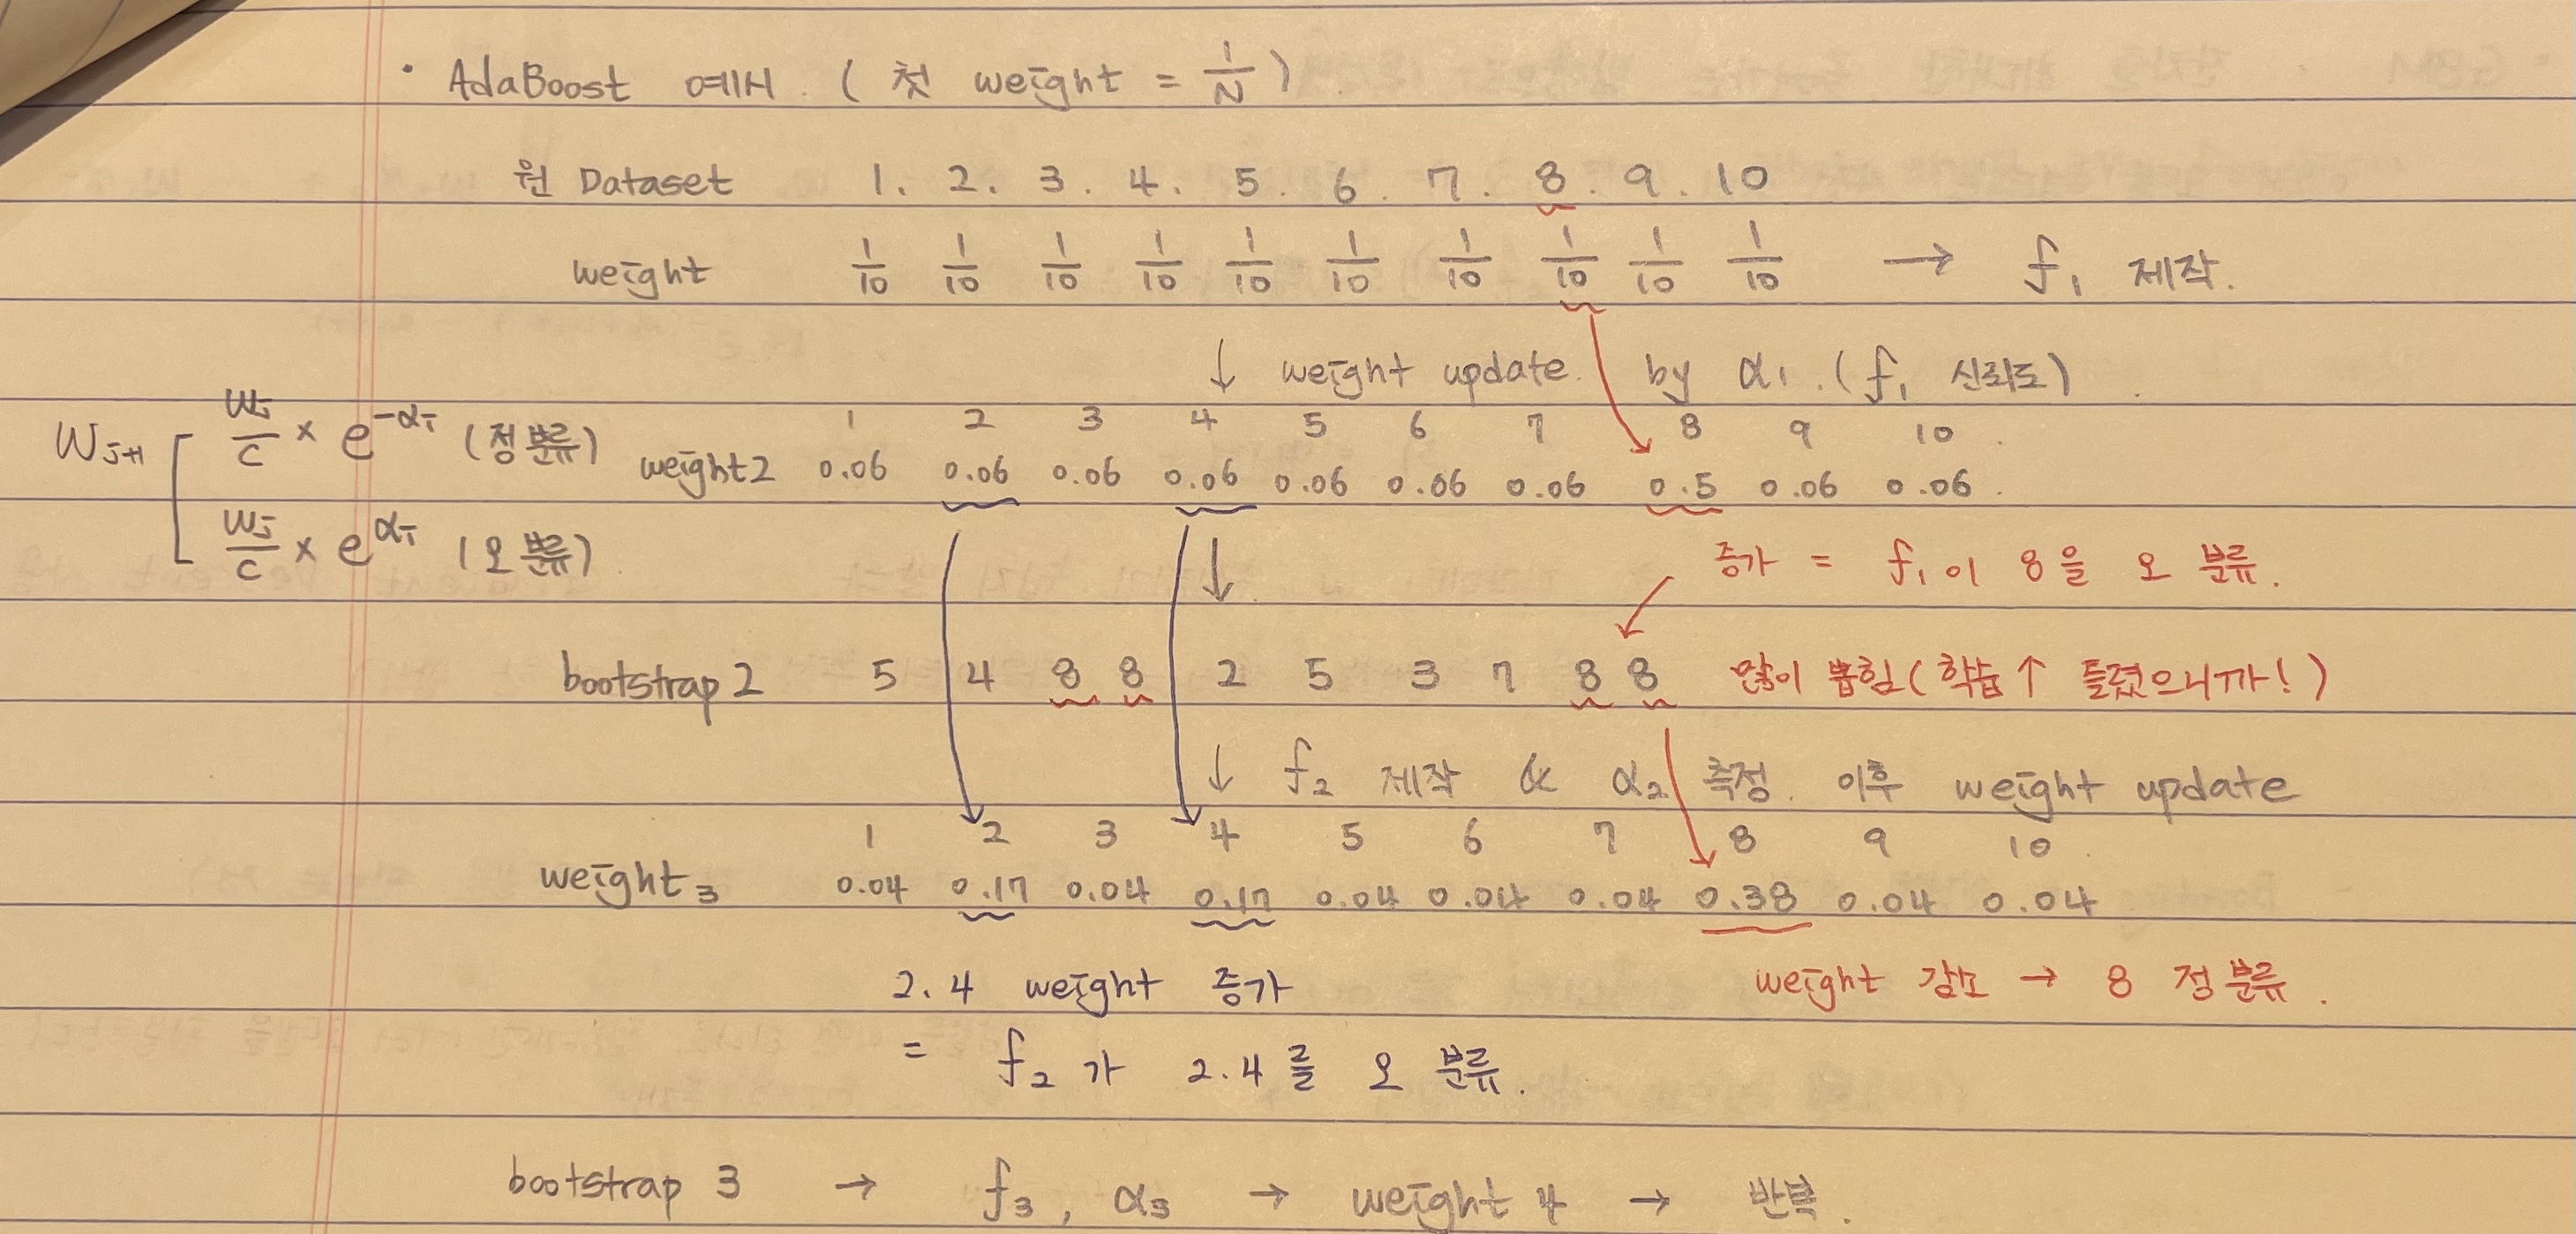 · AdaBoost 예시. ( 첫 weight = 1/N )
원 Dataset 1. 2. 3. 4. 5. 6. 7. 8. 9. 10
weight 1/10 1/10 1/10 1/10 1/10 1/10 1/10 1/10 1/10 1/10 → f₁ 제작.
↓ weight update. by α₁. (f₁ 신뢰도).
1 2 3 4 5 6 7 8 9 10.
weight2 0.06 0.06 0.06 0.06 0.06 0.06 0.06 0.5 0.06 0.06.
Wⱼ₊₁ [ Wⱼ/c × e^-αᵢ (정분류)
Wⱼ/c × e^αᵢ (오분류).
↓
증가 = f₁이 8을 오 분류.
bootstrap 2 5 4 8 8 2 5 3 7 8 8 많이 뽑힘 (학습↑ 틀렸으니까!)
↓ f₂ 제작 & α₂ 측정. 이후 weight update
1 2 3 4 5 6 7 8 9 10.
weight₃ 0.04 0.17 0.04 0.17 0.04 0.04 0.04 0.38 0.04 0.04
2.4 weight 증가
= f₂가 2.4를 오 분류.
weight 감소 → 8 정분류.
bootstrap 3 → f₃, α₃ → weight 4 → 반복.